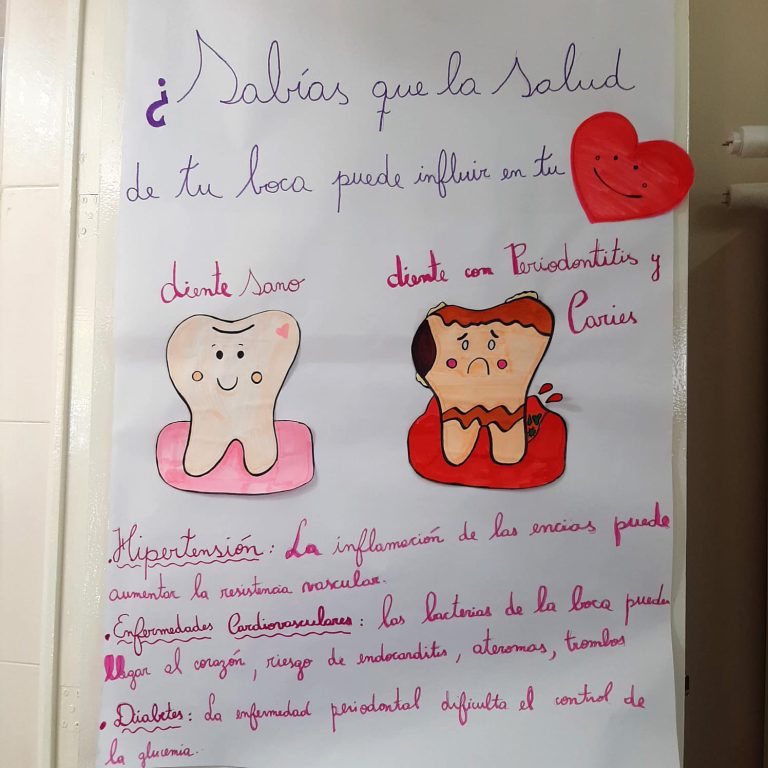 ¿Sabías que la Salud
de tu boca puede influir en tu
diente sano
diente con Periodontitis y
Caries
.Hipertensión: La inflamación de las encias puede
aumentar la resistencia vascular.
• Enfermedades Cardiovasculares: las bacterias de la boca pueden
llegar al corazón, riesgo de endocarditis, ateromas, trombos
• Diabetes: La enfermedad periodontal dificulta el control de
la glucemia.